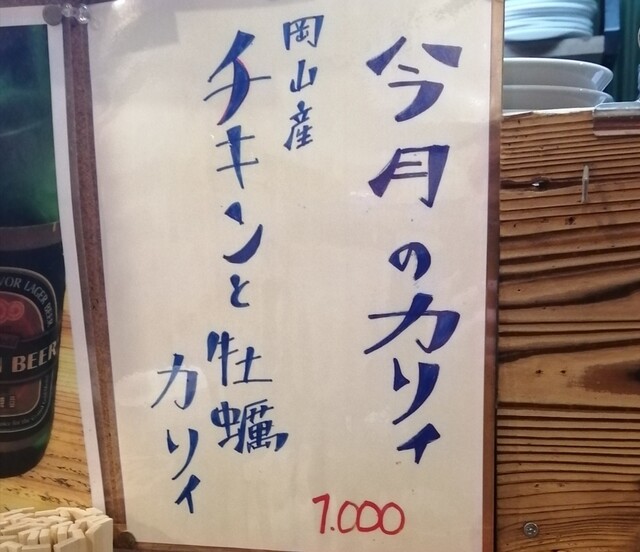 今月のカリィ
岡山産
チキンと牡蠣
カリィ
1.000
VOR LAGER BEER
BEER